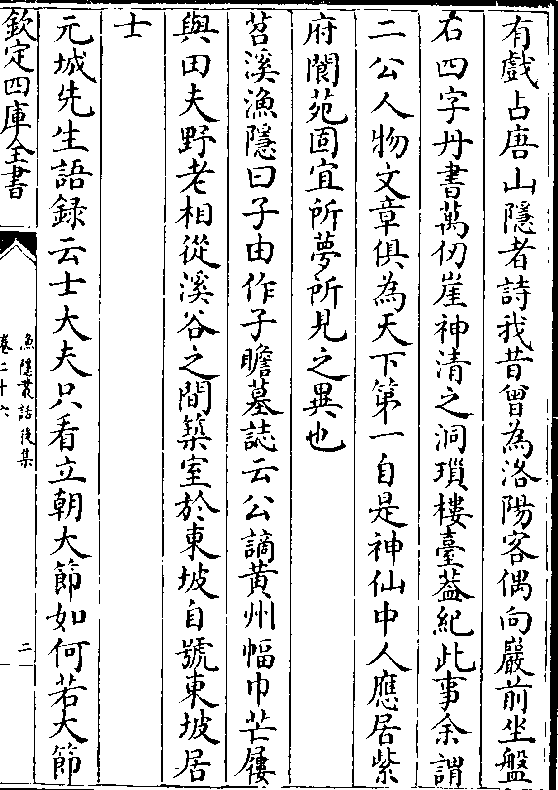 有戲占唐山隱者詩我昔曾為洛陽客偶向巖前坐盤
石四字丹書萬仞崖神清之洞瑣樓臺葢紀此事余謂
二公人物文章俱為天下第一自是神仙中人應居紫
府閬苑固宜所夢所見之異也
苕溪漁隱曰子由作子瞻墓誌云公謫黄州幅巾芒屨
與田夫野老相從溪谷之間築室於東坡自號東坡居
士
元城先生語録云士大夫只看立朝大節如何若大節
欽定四庫全書
漁隱叢話後集
卷二十六
二